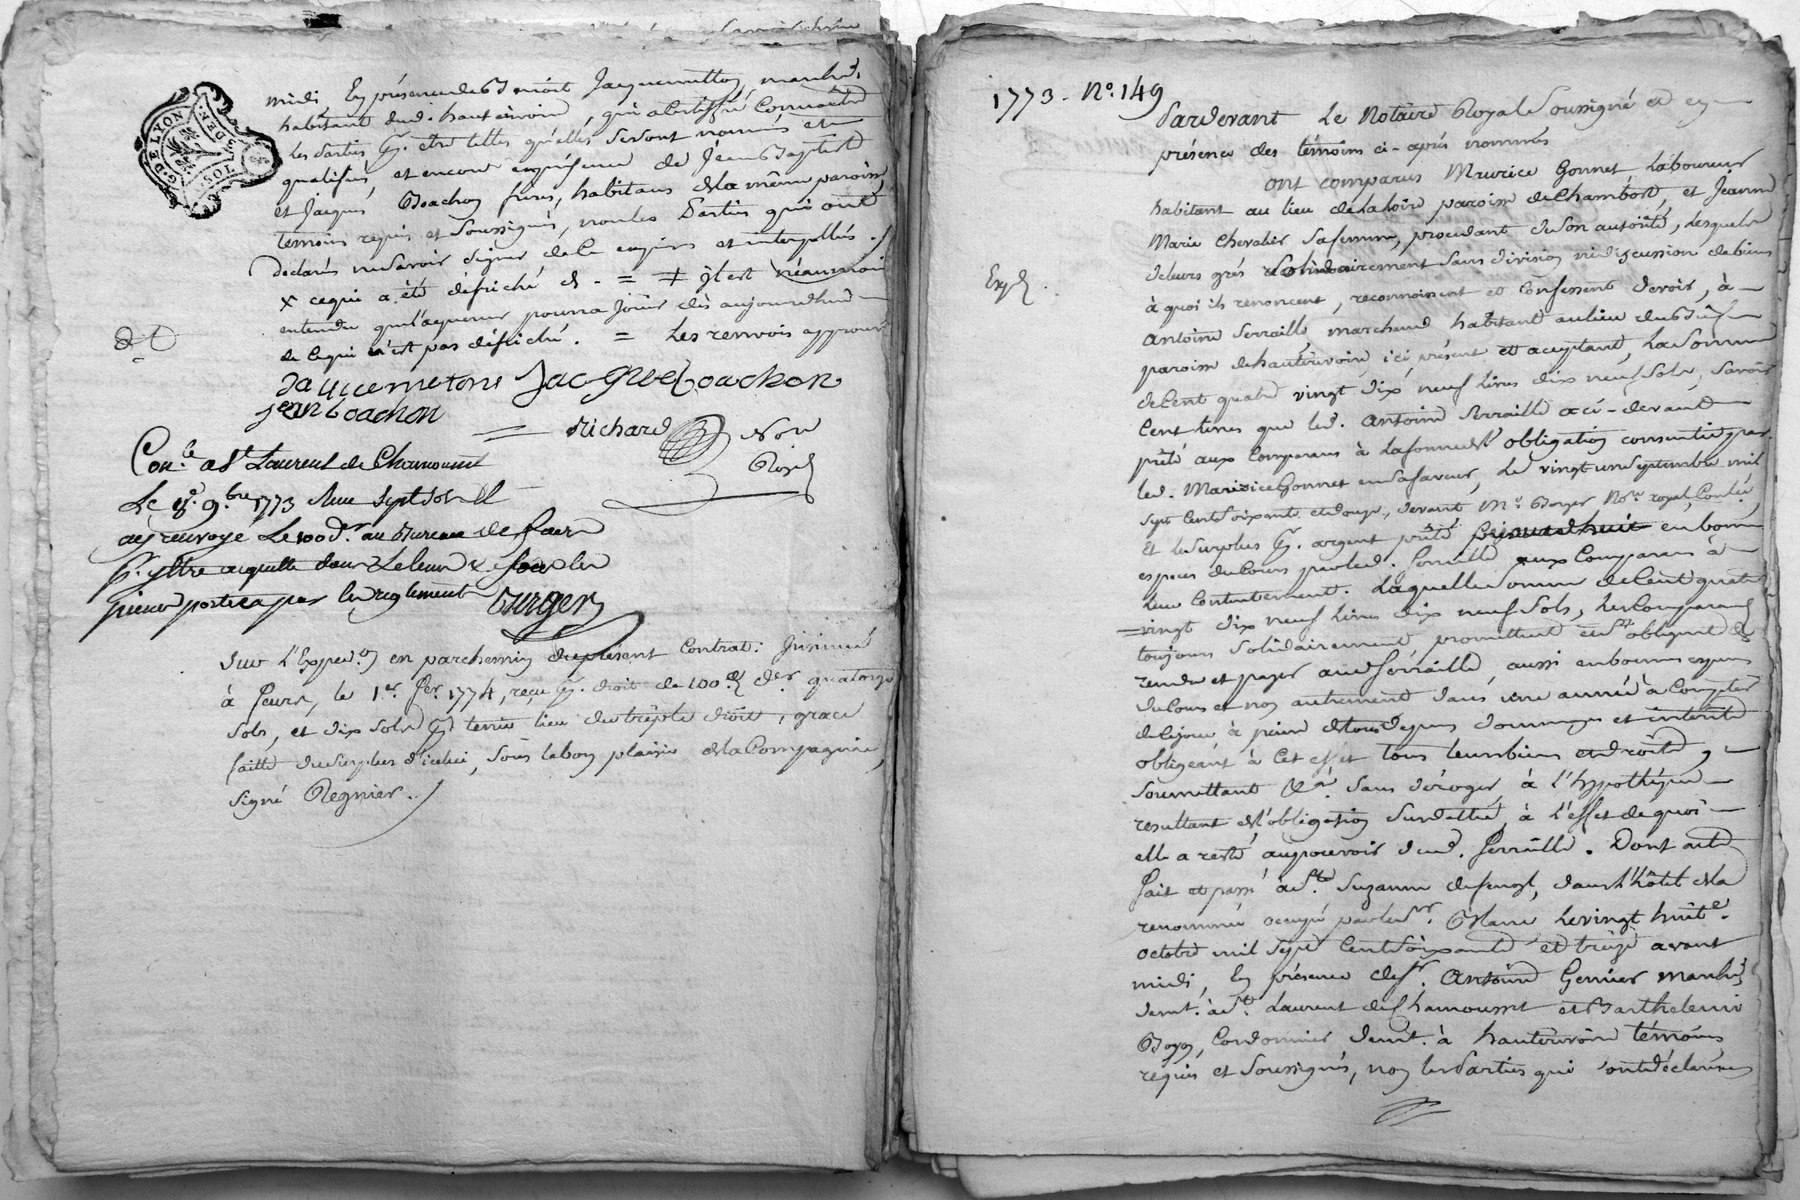 G. DE LYON
DEN.
midi, En présence de Benoit Jacquemetton, marchd.
habitant dud. hauterivoire, qui a certiffié connoitre
les Parties pr. etre telles qu'elles se sont nommés et
qualifiés, et encore en présence de Jean Baptiste
et Jacques Boachon freres, habitans de la même paroisse,
temoins requis et soussignés, non les Parties qui ont
declarés ne savoir signer de ce enquises et interpellés.
x ce qui a été défriché & - = ≠ il est néanmoins
entendu que l'acquereur pourra jouir dès aujourd'hui
de ce qui n'est pas défriché. = Les renvois approuvés
Jacquemetons Jacque boachon
jean boachon
= Richard Nore
Royal
Con.le a St Laurent de Chamousset
Le 8e. 9.bre 1773 Reçu sept sols
ay renvoyé Le 100e d.r au Bureau de feurs
Pr. y être acquitté dans Le tems & sous les
peines portées par les reglements Burger
Sur l'Exped.on en parchemin du présent Contrat: Insinué
à feurs, le 1.er fer. 1774, reçu pr. droit de 100e den. quatorze
sols, et dix sols pr. tenir lieu du triple droit, grace
faitte du surplus d'icelui, sous le bon plaisir de la Compagnie,
signé Regnier.
1773 - No. 149
Pardevant Le Notaire Royal soussigné et en
présence des témoins ci-après nommés
Ont comparus Maurice Gonnet Laboureur
habitant au lieu de la loire paroisse de Chambost, et Jeanne
Marie Chevalier sa femme, procedant de son autorité, Lesquels
de leurs grés solidairement sans division ni discussion de biens
à quoi ils renoncent, reconnoissent et confessent devoir, à
Antoine Ferraille, marchand habitant au lieu du
paroisse de hauterivoire, ici présent et acceptant, La somme
de Cent quatre vingt dix neuf Livres dix neuf sols, savoir
Cent livres que led. Antoine Ferraille a ci-devant
prêté aux Comparans à la forme de l'obligation consentie par
led. Maurice Gonnet en sa faveur, Le vingt un septembre mil
sept Cent soixante et douze, devant Me. Boyer No.re royal, Conlée,
Et le surplus pr. argent prêté cejourd'huit en bonnes
especes du Cours par led. Ferraille aux Comparans à
leur contentement. Laquelle somme de Cent quatre
=vingt dix neuf Livres dix neuf sols, Les Comparans
toujours solidairement, promettent et s'obligent de
rendre et payer aud. Ferraille, aussi en bonnes especes
du Cours et non autrement dans une année à Compter
de ce jour à peine de tous depens dommages et interets
obligeant à Cet effet tous leurs biens et droits,
soumettant &a. Sans déroger, à l'hypothèque
resultant de l'obligation surdatée, à l'effet de quoi
elle a resté au pouvoir dud. Ferraille. Dont acte
fait et passé à Ste Suzanne de fenoyl, dans l'hôtel de la
renommée occupé par le sr. Blanc Le vingt huite.
octobre mil sept Cent soixante et treize avant
midi, En présence de sr. Antoine Gernier marchd.
demt. à St. Laurent de Chamousset et Barthelemi
Boyer, Cordonnier demt. à hauterivoire témoins
requis et soussignés, non les Parties qui ont déclarés
Expd.